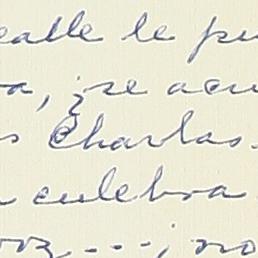 calle le pu
a, ¿se acu
s Charlas.
culebra
oz ...; no